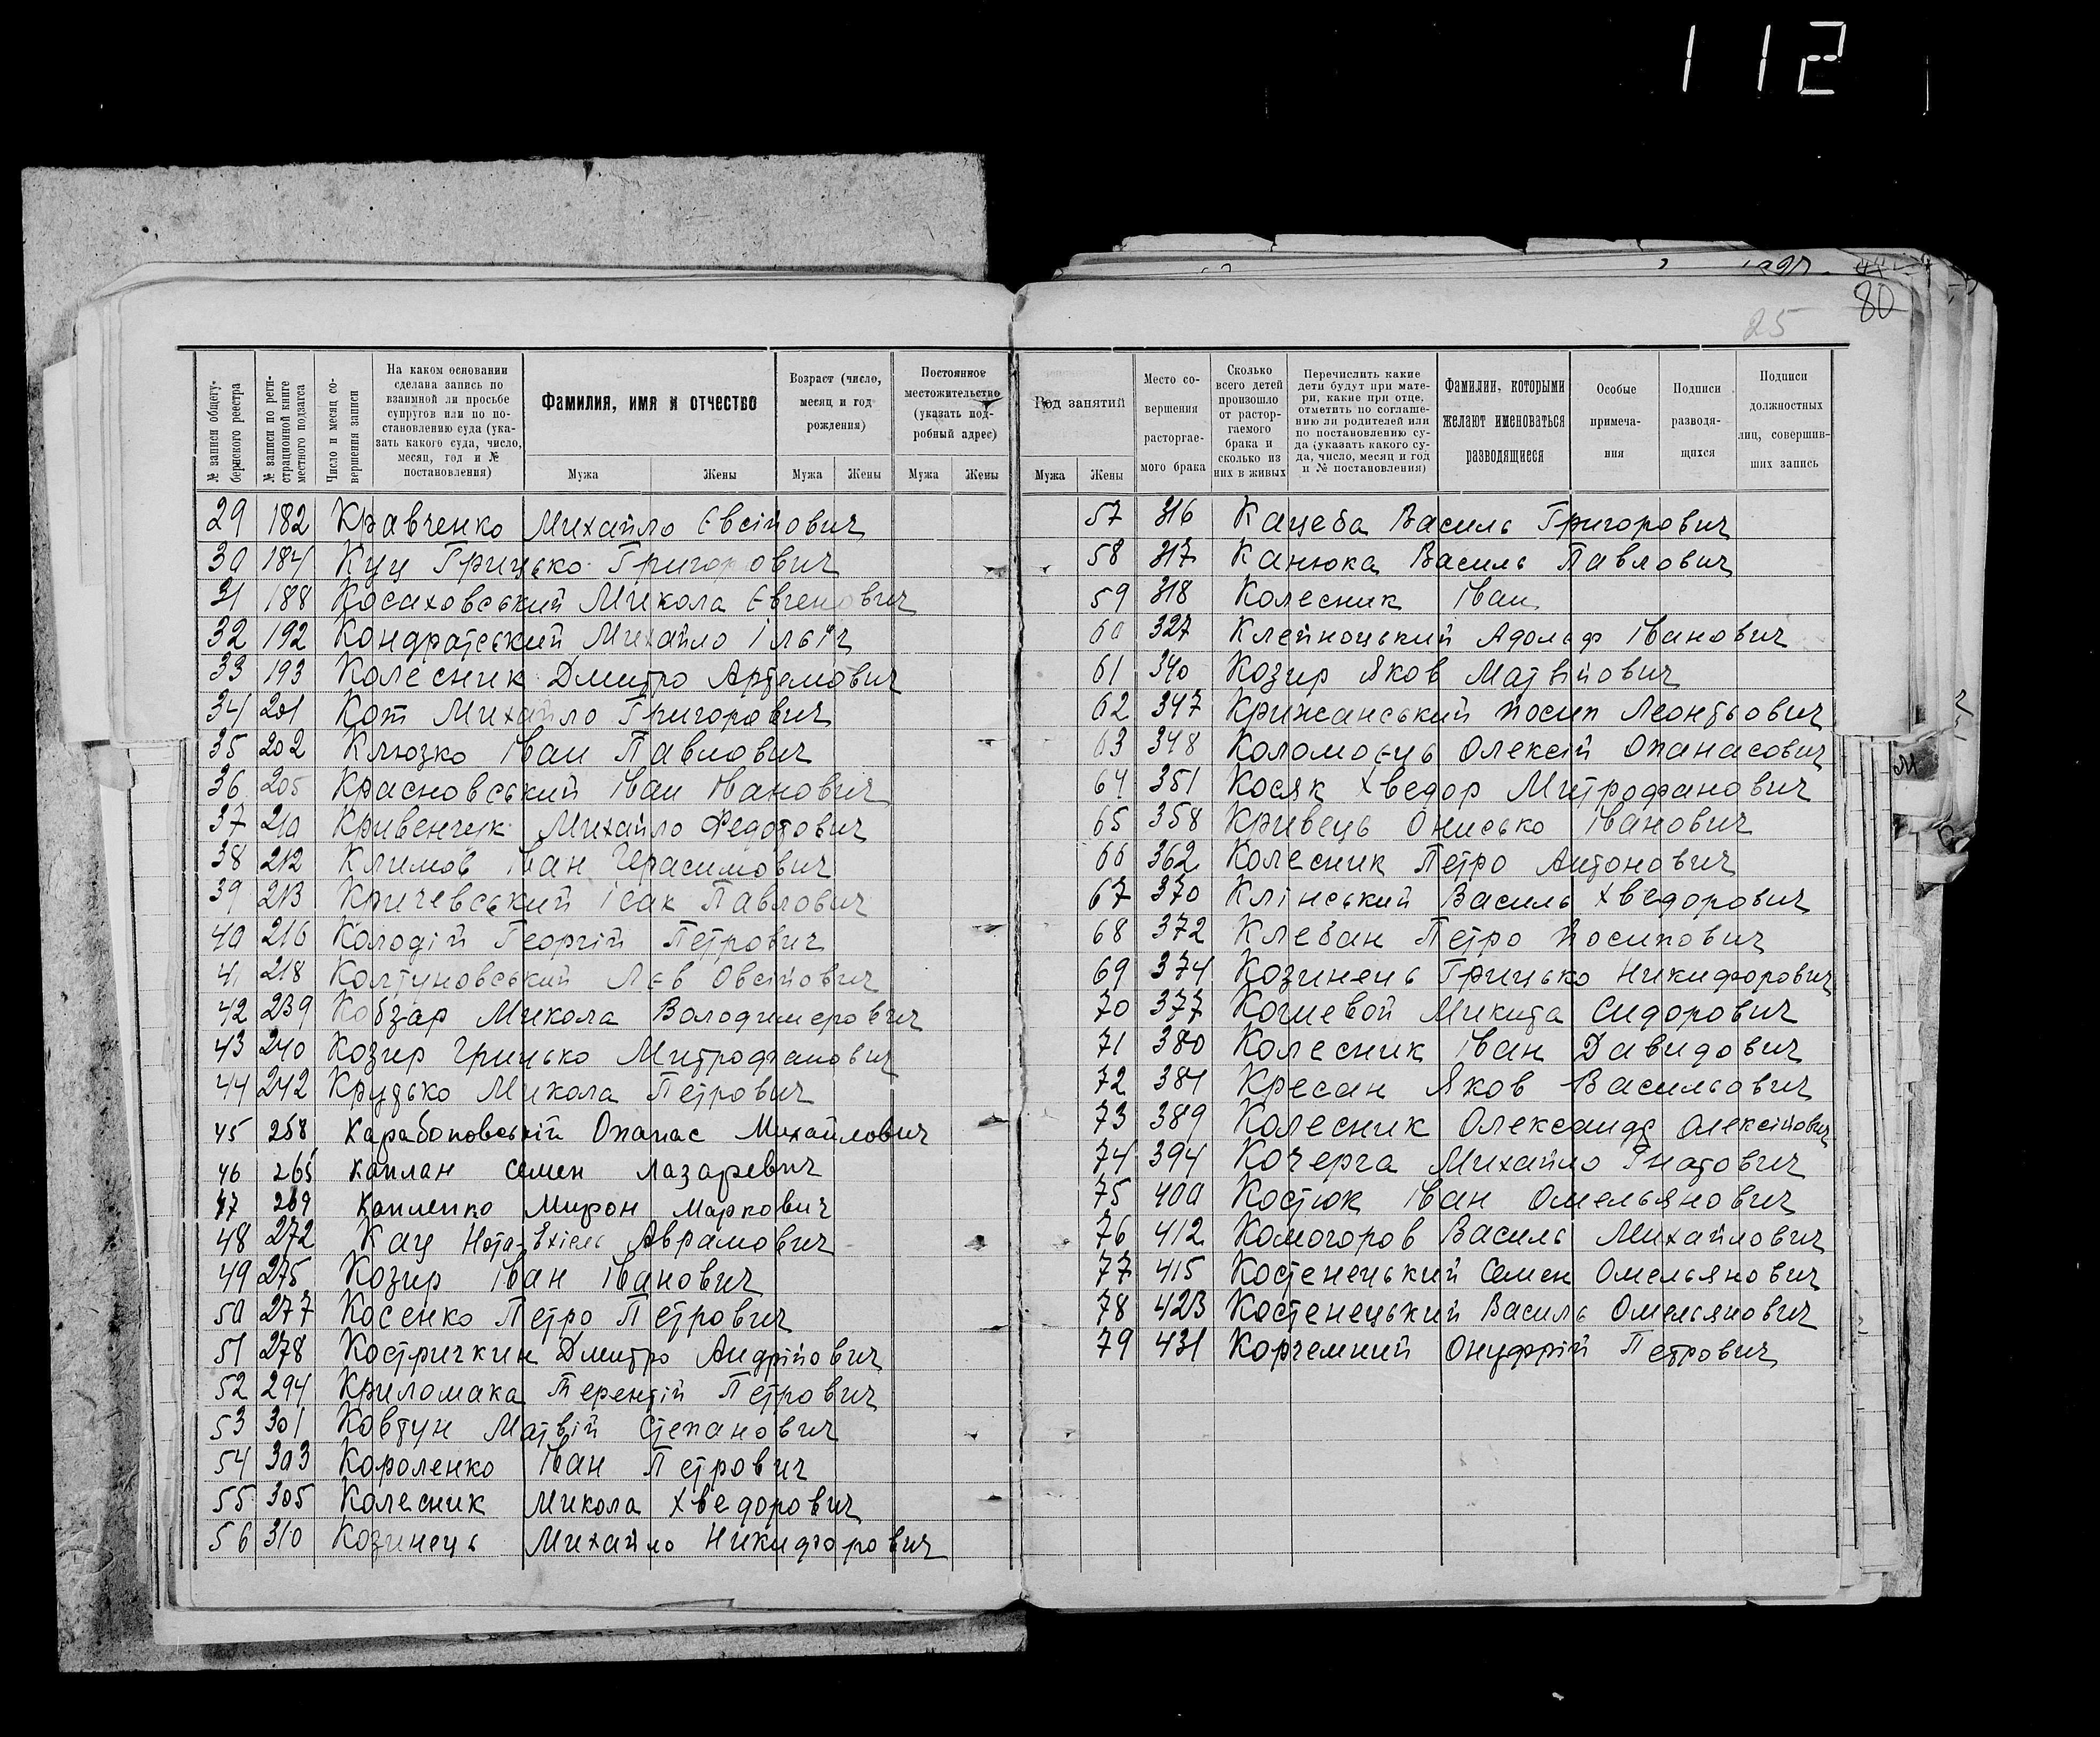 112
80
25
№ записи общегу-
бернского реестра
№ записи по реги-
страционной книге
местного подзагса
Число и месяц со-
вершения записи
На каком основании
сделана запись по
взаимной ли просьбе
супругов или по по-
становлению суда (ука-
зать какого суда, число,
месяц, год и №
постановления)
Фамилия, имя и отчество
Мужа Жены
Возраст (число,
месяц и год
рождения)
Мужа Жены
Постоянное
местожительство
(указать под-
робный адрес)
Мужа Жены
29 182 Кравченко Михайло Євсійович
30 184 Куц Грицько Григорович
31 188 Косаховський Микола Євгенович
32 192 Кондратський Михайло Ільїч
33 193 Колесник Дмитро Артемович
34 201 Кот Михайло Григорович
35 202 Клюзко Іван Павлович
36 205 Красновський Іван Іванович
37 210 Кривенчик Михайло Федотович
38 212 Климов Іван Герасимович
39 213 Кричевський Ісак Павлович
40 216 Колодій Георгій Петрович
41 218 Колтуновський Лєв Овсійович
42 239 Кобзар Микола Володимерович
43 240 Козир Грицько Митрофанович
44 242 Крудько Микола Петрович
45 258 Карабоновській Опанас Михайлович
46 265 Каплан Семен Лазаревич
47 269 Капленко Мирон Маркович
48 272 Кац Нота-Єхіель Аврамович
49 275 Козир Іван Іванович
50 277 Косенко Петро Петрович
51 278 Костричкин Дмитро Андрійович
52 294 Криломака Терентій Петрович
53 301 Ковтун Матвій Степанович
54 303 Короленко Іван Петрович
55 305 Колесник Микола Хведорович
56 310 Козинець Михайло Никифорович
Род занятий
Мужа Жены
Место со-
вершения
расторгае-
мого брака
Сколько
всего детей
произошло
от растор-
гаемого
брака и
сколько из
них в живых
Перечислить какие
дети будут при мате-
ри, какие при отце,
отметить по соглаше-
нию ли родителей или
по постановлению су-
да (указать какого су-
да, число, месяц и год
и № постановления)
Фамилии, которыми
желают именоваться
разводящиеся
Особые
примеча-
ния
Подписи
разводя-
щихся
Подписи
должностных
лиц, совершив-
ших запись
57 316 Кацеба Василь Григорович
58 317 Канюка Василь Павлович
59 318 Колесник Іван
60 327 Клейноцький Адольф Іванович
61 340 Козир Яков Матвійович
62 347 Крижанський Йосип Леонтьович
63 348 Коломоєць Олексій Опанасович
64 351 Косяк Хведор Митрофанович
65 358 Кривець Онисько Іванович
66 362 Колесник Петро Антонович
67 370 Клінський Василь Хведорович
68 372 Клебан Петро Йосипович
69 374 Козинець Грицько Никифорович
70 377 Кошевой Микита Сидорович
71 380 Колесник Іван Давидович
72 381 Кресан Яков Васильович
73 389 Колесник Олександр Олексійович
74 394 Кочерга Михайло Гнатович
75 400 Костюк Іван Омельянович
76 412 Комогоров Василь Михайлович
77 415 Костенецький Семен Омельянович
78 423 Костенецький Василь Омельянович
79 431 Корчемний Онуфрій Петрович